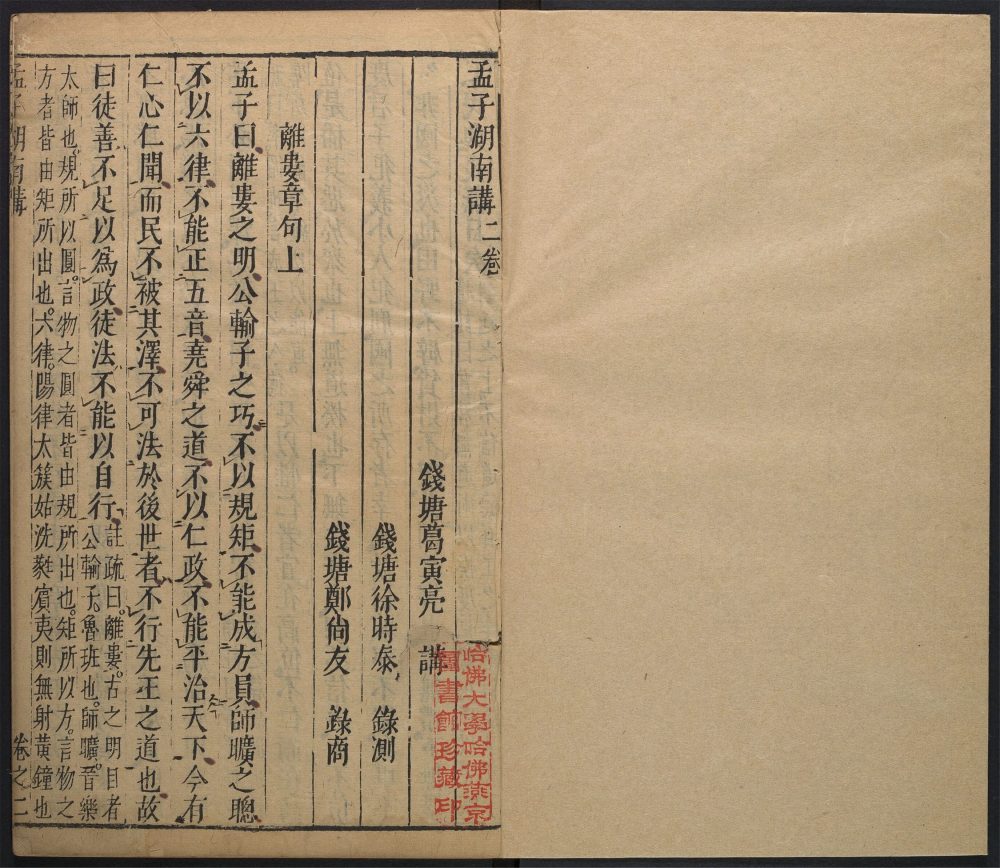 孟子湖南講二卷
錢塘葛寅亮講
錢塘徐時泰錄測
錢塘鄭尚友錄商
離婁章句上
孟子曰離婁之明公輸子之巧不以規矩不能成方員師曠之聰
不以六律不能正五音堯舜之道不以仁政不能平治天下今有
仁心仁聞而民不被其澤不可法於後世者不行先王之道也故
曰徒善不足以為政徒法不能以自行註疏曰離婁古之明目者
公輸子魯班也師曠晉樂
太師也規所以圓言物之圓者皆由規所出也矩所以方言物之
方者皆由矩所出也六律陽律太簇姑洗蕤賓夷則無射黃鐘也
孟子湖南講
卷之二
哈佛大學哈佛燕京
圖書館珍藏印